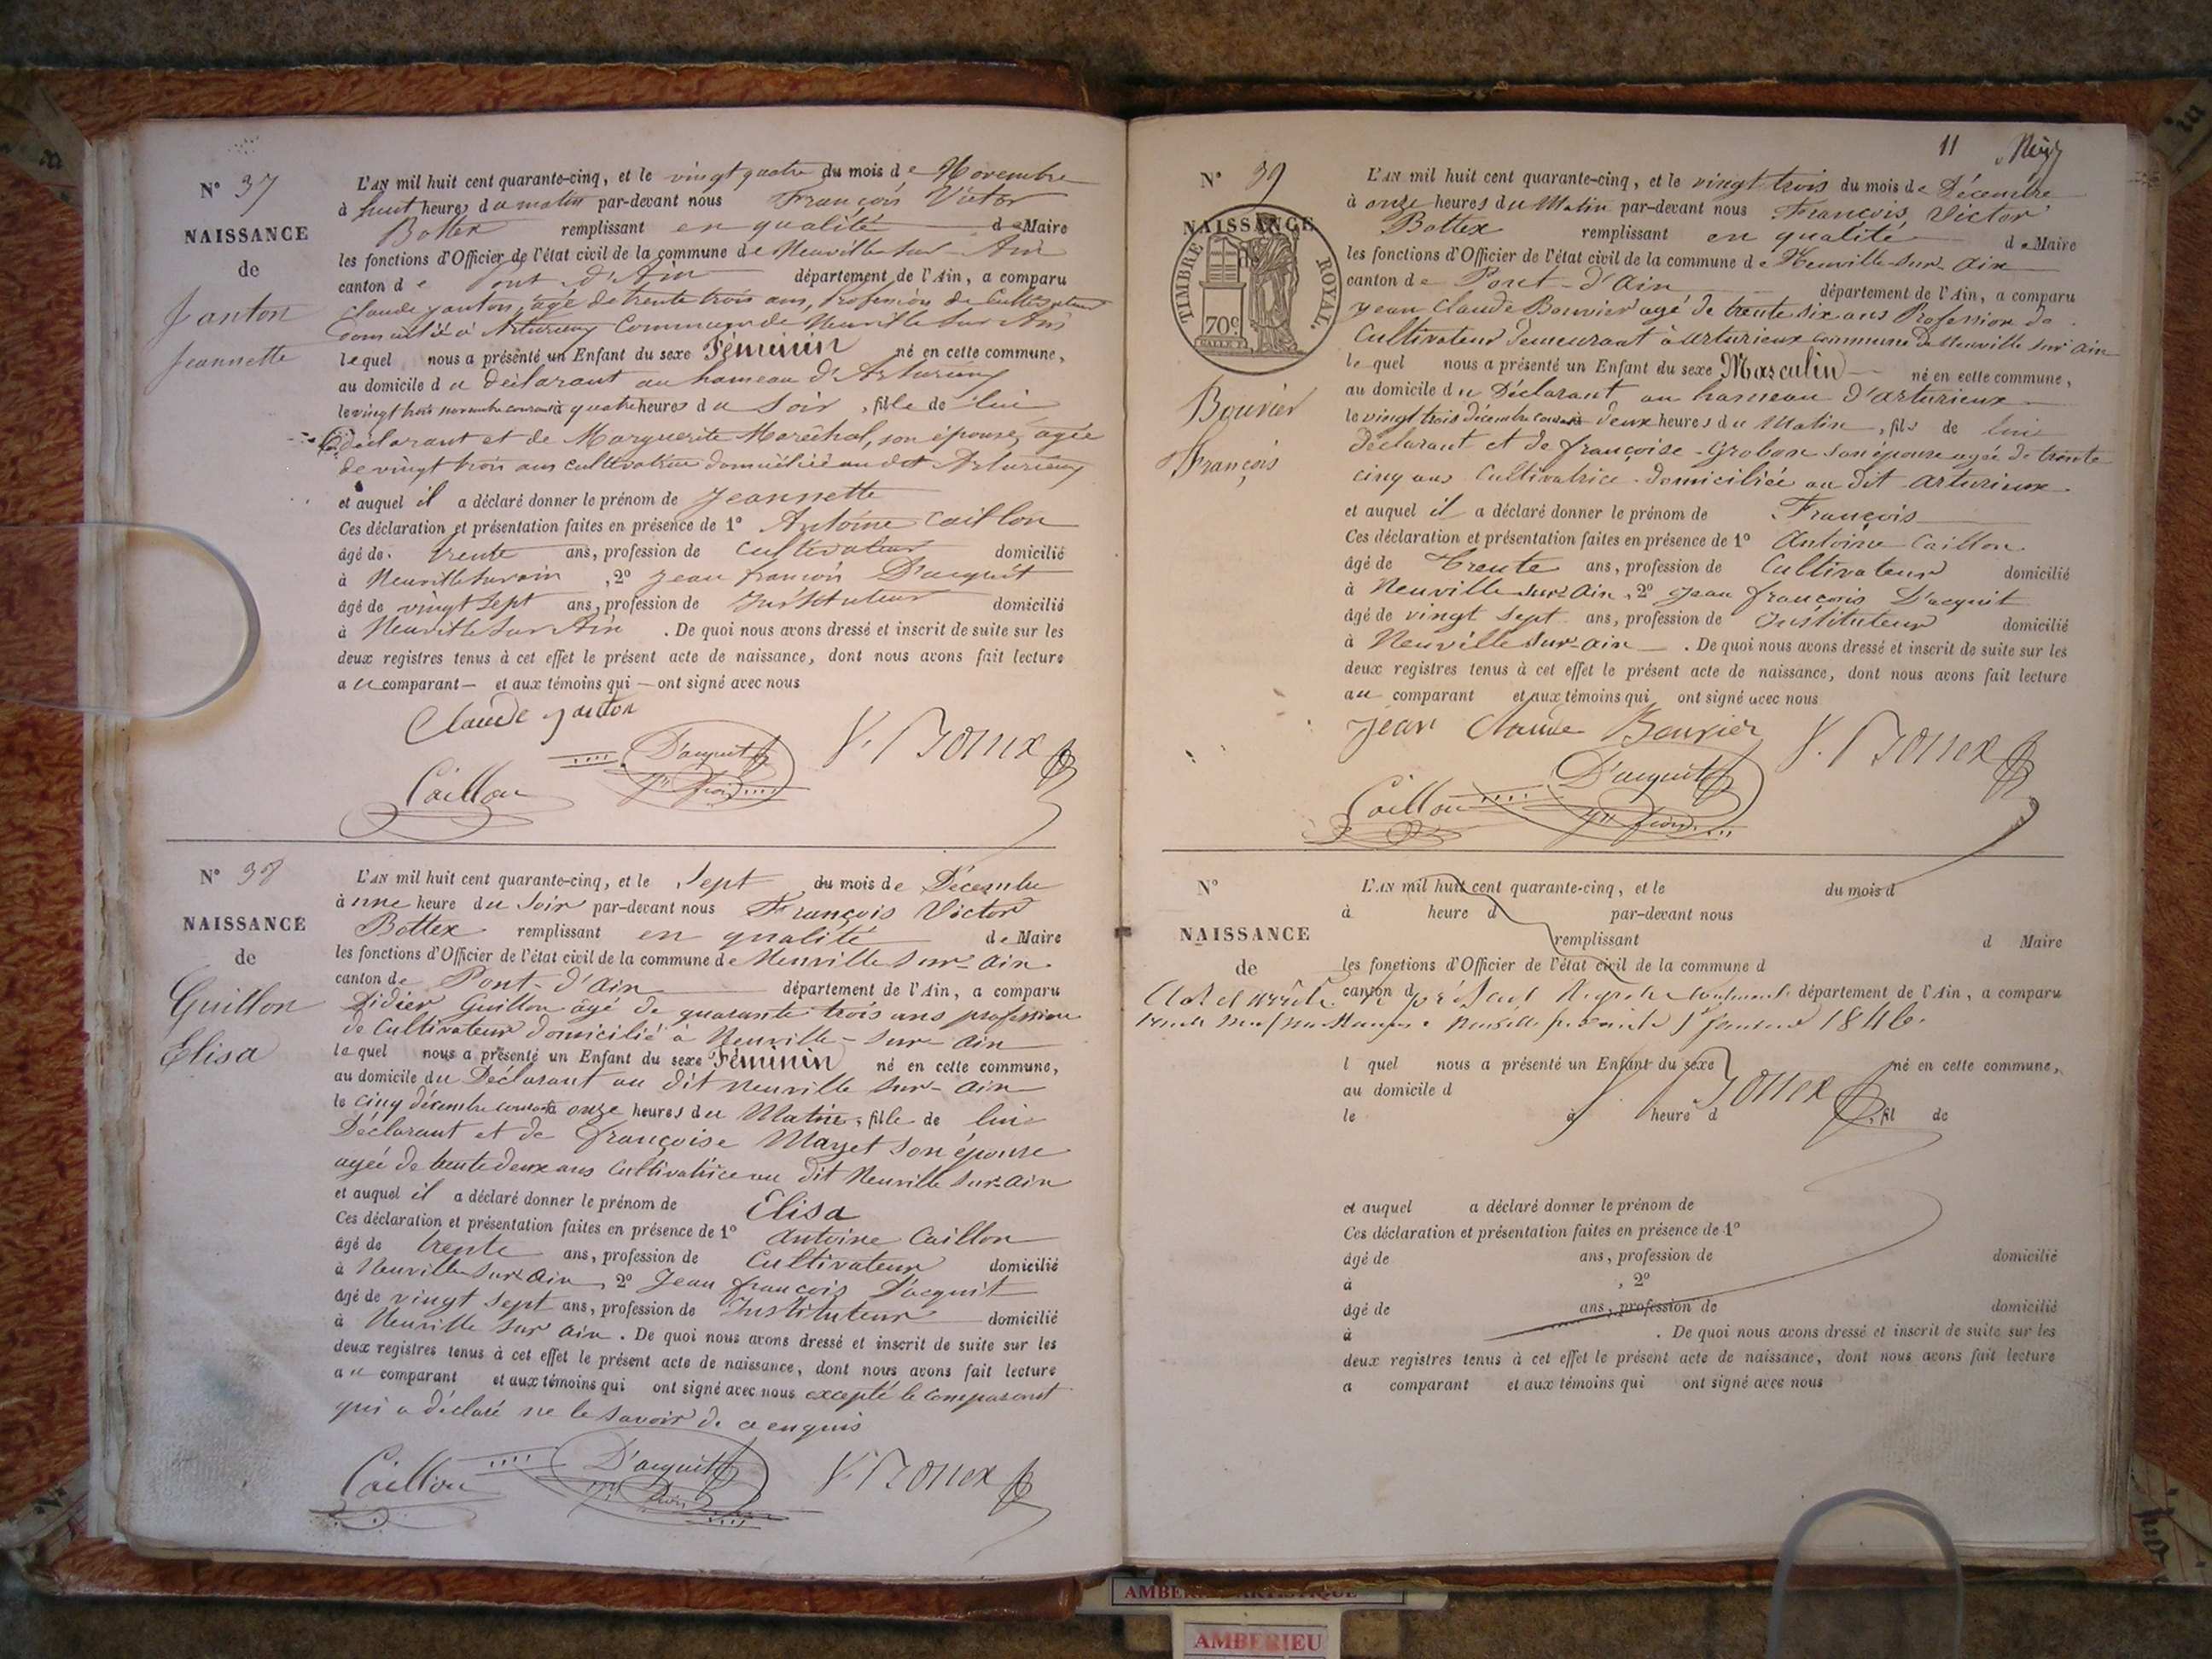 N° 37
NAISSANCE
de
Janton
Jeannette
L'AN mil huit cent quarante-cinq, et le vingt quatre du mois de Novembre
à huit heures du matin par-devant nous François Victor
Bottex remplissant en qualité de Maire
les fonctions d'Officier de l'état civil de la commune de Neuville sur Ain
canton de Pont d'Ain département de l'Ain, a comparu
Claude Janton, âgé de trente trois ans, profession de Cultivateur
domicilié à Arturieux Commune de Neuville sur Ain
lequel nous a présenté un Enfant du sexe Féminin né en cette commune,
au domicile du déclarant au hameau d'Arturieux
le vingt trois novembre courant à quatre heures du Soir, fille de lui
déclarant et de Marguerite Maréchal, son épouse, agée
de vingt trois ans cultivatrice domiciliée au dit Arturieux
et auquel il a déclaré donner le prénom de Jeannette
Ces déclaration et présentation faites en présence de 1° Antoine Caillon
âgé de trente ans, profession de cultivateur domicilié
à Neuville sur ain, 2° Jean françois D'acquit
âgé de vingt sept ans, profession de Instituteur domicilié
à Neuville sur Ain. De quoi nous avons dressé et inscrit de suite sur les
deux registres tenus à cet effet le présent acte de naissance, dont nous avons fait lecture
au comparant et aux témoins qui ont signé avec nous
Claude janton
Caillon D'acquit V. Bottex
N° 38
NAISSANCE
de
Guillon
Elisa
L'AN mil huit cent quarante-cinq, et le Sept du mois de Décembre
à une heure du Soir par-devant nous François Victor
Bottex remplissant en qualité de Maire
les fonctions d'Officier de l'état civil de la commune de Neuville sur-ain
canton de Pont-d'ain département de l'Ain, a comparu
Didier Guillon âgé de quarante trois ans profession
de Cultivateur domicilié à Neuville-sur-ain
lequel nous a présenté un Enfant du sexe Féminin né en cette commune,
au domicile du Déclarant au dit neuville sur-ain
le cinq décembre courant à onze heures du Matin, fille de lui
Déclarant et de françoise Mayet son épouse
agée de trente deux ans Cultivatrice au dit Neuville sur-ain
et auquel il a déclaré donner le prénom de Elisa
Ces déclaration et présentation faites en présence de 1° antoine Caillon
âgé de trente ans, profession de Cultivateur domicilié
à Neuville sur ain, 2° Jean françois D'acquit
âgé de vingt sept ans, profession de Instituteur domicilié
à Neuville sur ain. De quoi nous avons dressé et inscrit de suite sur les
deux registres tenus à cet effet le présent acte de naissance, dont nous avons fait lecture
au comparant et aux témoins qui ont signé avec nous excepté le comparant
qui a déclaré ne le savoir de ce enquis
Caillon D'acquit V. Bottex
11
N° 39
NAISSANCE
de
TIMBRE ROYAL.
70c
Bouvier
François
L'AN mil huit cent quarante-cinq, et le vingt trois du mois de Décembre
à onze heures du Matin par-devant nous François Victor
Bottex remplissant en qualité de Maire
les fonctions d'Officier de l'état civil de la commune de Neuville-sur-ain
canton de Pont-d'ain département de l'Ain, a comparu
Jean Claude Bouvier agé de trente six ans Profession de
Cultivateur demeurant à arturieux commune de Neuville sur ain
lequel nous a présenté un Enfant du sexe Masculin né en cette commune,
au domicile du Déclarant au hameau d'arturieux
le vingt trois décembre courant à deux heures du Matin, fils de lui
déclarant et de françoise Groban son épouse agée de trente
cinq ans Cultivatrice domiciliée au dit arturieux
et auquel il a déclaré donner le prénom de François
Ces déclaration et présentation faites en présence de 1° Antoine Caillon
âgé de Trente ans, profession de Cultivateur domicilié
à Neuville sur ain, 2° Jean françois D'acquit
âgé de vingt sept ans, profession de Instituteur domicilié
à Neuville sur-ain. De quoi nous avons dressé et inscrit de suite sur les
deux registres tenus à cet effet le présent acte de naissance, dont nous avons fait lecture
au comparant et aux témoins qui ont signé avec nous
Jean Claude Bouvier
Caillon D'acquit V. Bottex
N°
NAISSANCE
de
L'AN mil huit cent quarante-cinq, et le du mois d
à heure d par-devant nous
remplissant d Maire
les fonctions d'Officier de l'état civil de la commune d
canton d département de l'Ain, a comparu
Clos et arrêté le présent Registre contenant
trente neuf 1er janvier 1846.
l quel nous a présenté un Enfant du sexe né en cette commune,
au domicile d
le à heure d , fil de
V. Bottex
et auquel a déclaré donner le prénom de
Ces déclaration et présentation faites en présence de 1°
âgé de ans, profession de domicilié
à , 2°
âgé de ans, profession de domicilié
à . De quoi nous avons dressé et inscrit de suite sur les
deux registres tenus à cet effet le présent acte de naissance, dont nous avons fait lecture
a comparant et aux témoins qui ont signé avec nous
AMBERIEU